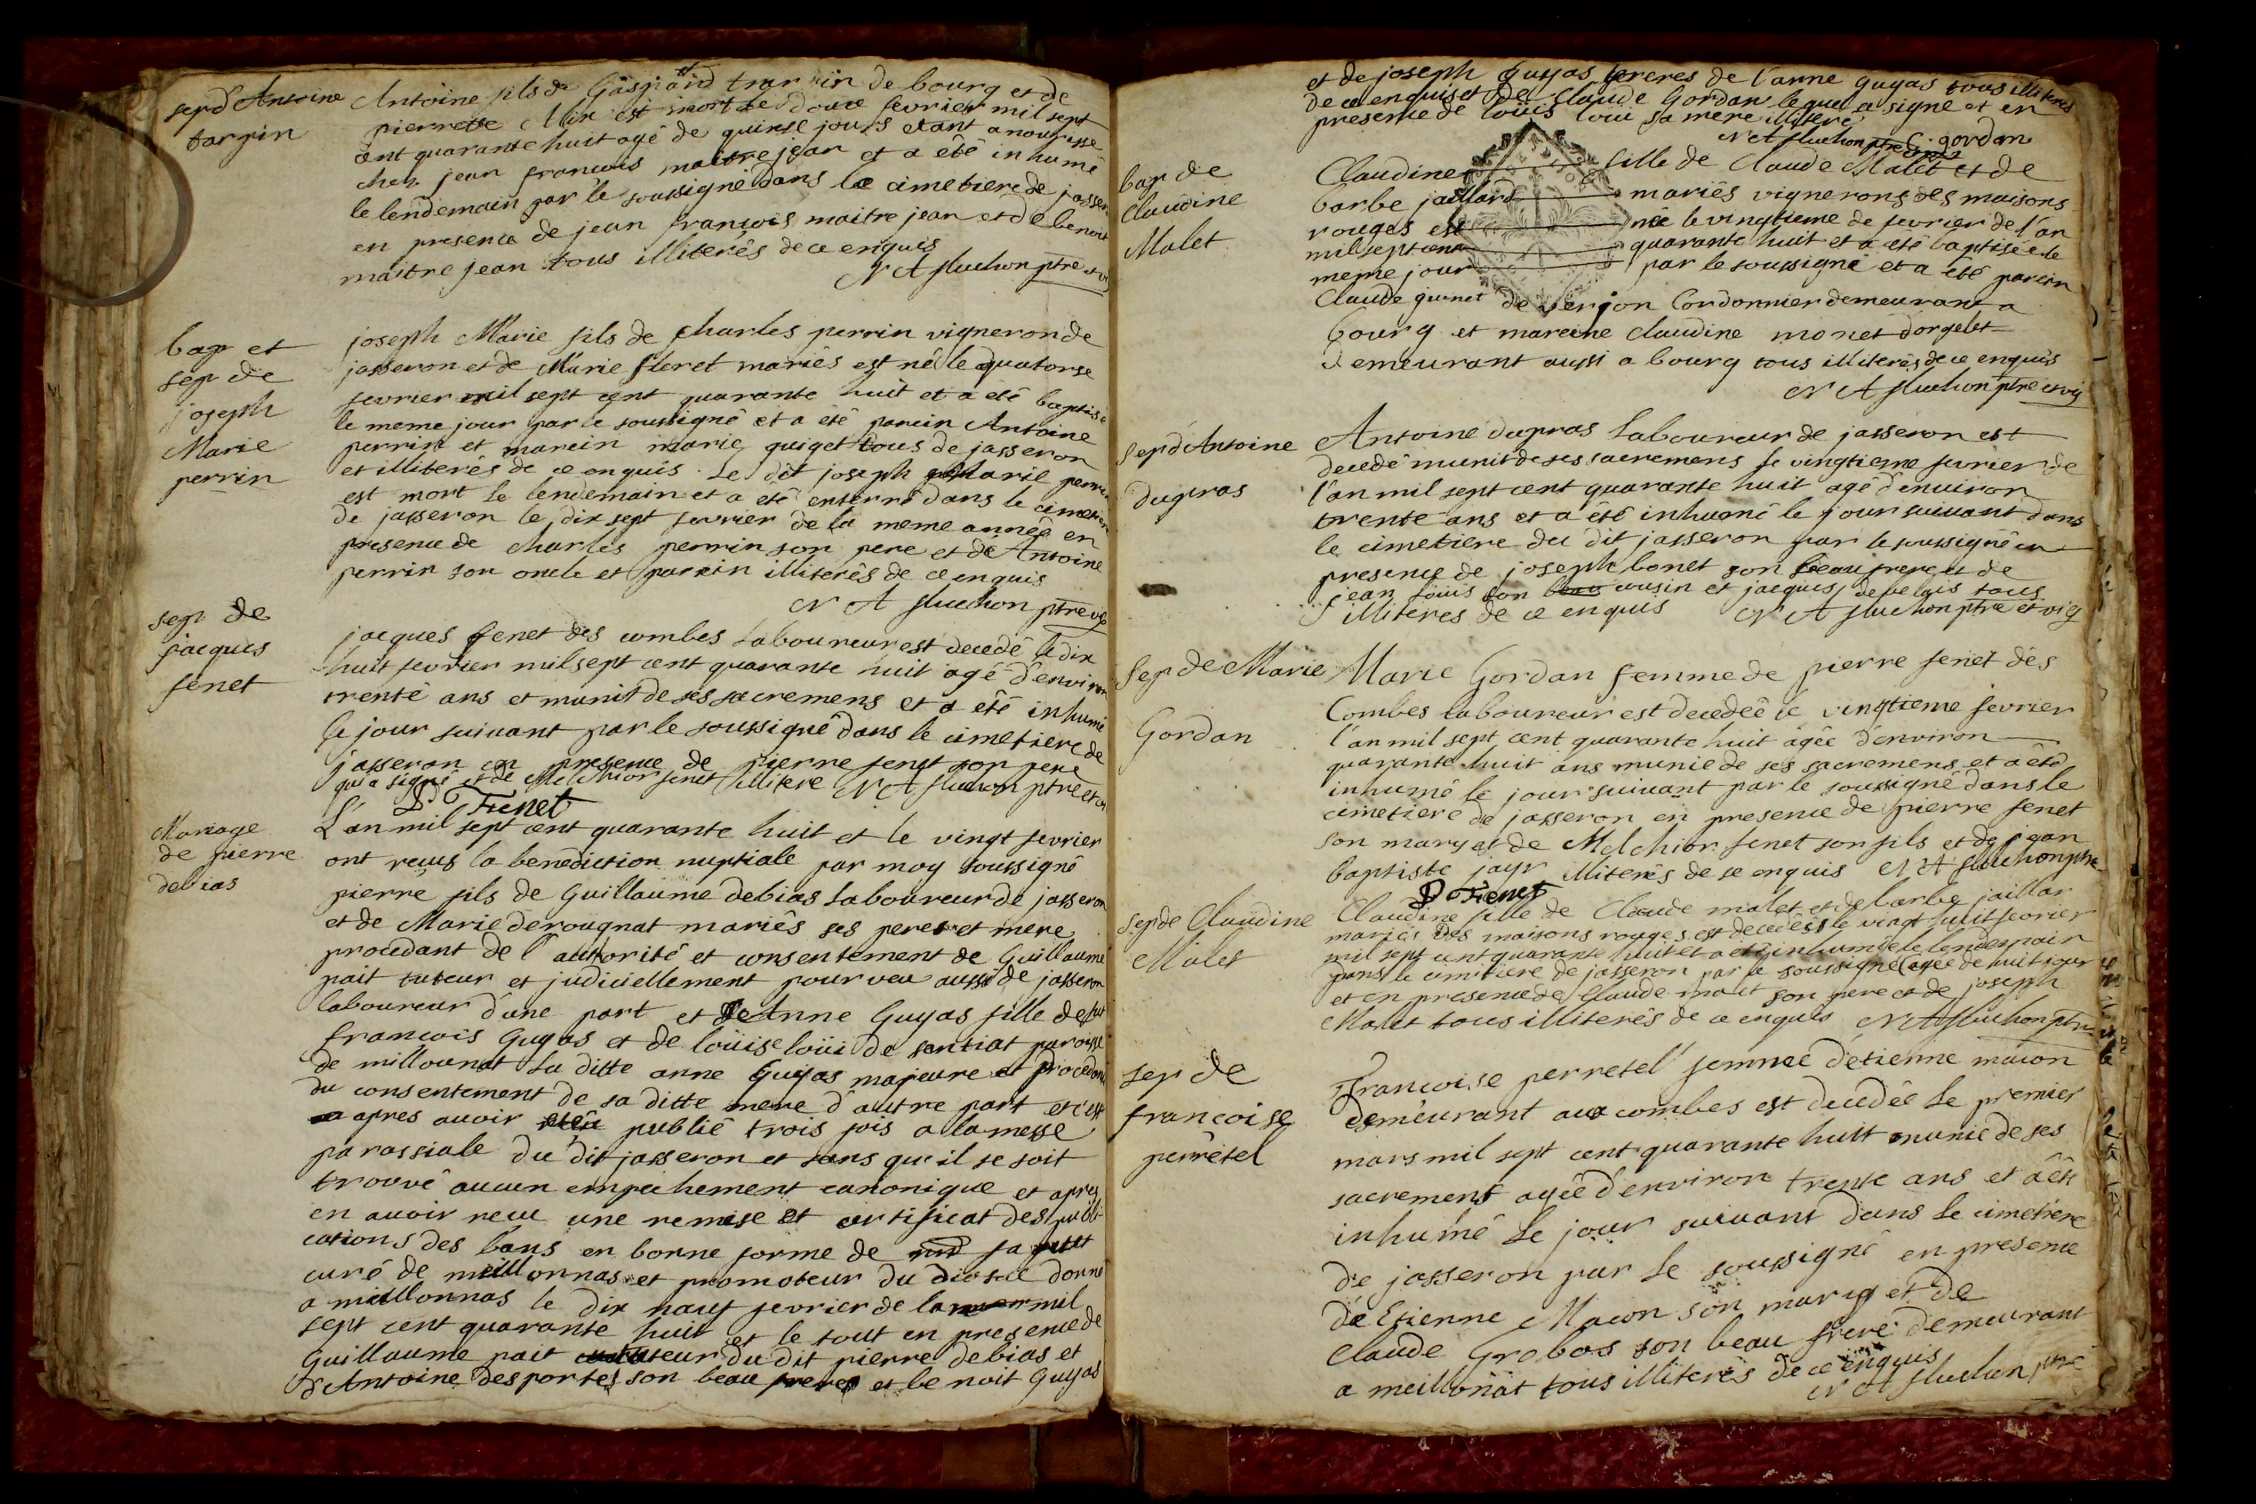 sep d'Antoine
tarpin
Antoine fils de Gaspard tarpin de bourg et de
pierrette Mix est mort le douze fevrier mil sept
cent quarante huit agé de quinse jours etant a nourisse
chez jean francois maitre jean et a êtê inhumê
le lendemain par le soussigné dans le cimetiere de jasseron
en presence de jean françois maitre jean et de benoit
maitre jean tous illiterês de ce enquis
N A fluchon ptre et vic
bap et
sep de
joseph
Marie
perrin
joseph Marie fils de charles perrin vigneron de
jasseron et de Marie fleret mariés est né le quatorse
fevrier mil sept cent quarante huit et a eté baptisé
le meme jour par le soussigné et a eté parein Antoine
perrin et marein marie guiget tous de jasseron
et illiterés de ce enquis. Le dit joseph Marie perrin
est mort le lendemain et a eté enterré dans le cimetiere
de jasseron le dix sept fevrier de la meme année en
presence de charles perrin son pere et de Antoine
perrin son oncle et parein illiterês de ce enquis
N A fluchon ptre vic
sep de
jacques
fenet
jacques fenet des combes laboureur est decedé le dix
huit fevrier mil sept cent quarante huit agé d'environ
trente ans et munit de ses sacremens et a êté inhumé
le jour suivant par le soussigné dans le cimetiere de
jasseron en presence de pierre fenet son pere
qui a signé et de Melchior fenet illitere N A fluchon ptre et vic
P Fenet
Mariage
de pierre
debias
L'an mil sept cent quarante huit et le vingt fevrier
ont reçus la benediction nuptiale par moy soussigné
pierre fils de Guillaume debias laboureur de jasseron
et de Marie derougnat mariés ses peres et mere
procedant de l'autorité et consentement de Guillaume
pait tuteur et judiciellement pourveu aussi de jasseron
laboureur d'une part et de Anne Guyas fille de fut
francois Guyas et de loüise loüi de sanciat paroisse
de millounat la ditte anne Guyas majeure et procedant
du consentement de sa ditte mere d'autre part et c'est
apres avoir publié trois fois a la messe
parossiale du dit jasseron et sans que il se soit
trouvé aucun empechement canonique et apres
en avoir recu une remise et certificat des publi
cations des bans en bonne forme de
curé de meillonnas et promoteur du diosese donné
a meillonnas le dix neuf fevrier de la mil
sept cent quarante huit et le tout en presence de
Guillaume pait tuteur du dit pierre debias et
d'Antoine desportes son beau frere et benoit Guyas
et de joseph Guyas freres de l'anne guyas tous illiteres
de ce enquis et de Claude Gordan lequel a signé et en
presence de loüis loüi sa mere illiteré
N A fluchon ptre C. gordan
bap de
Claudine
Malet
Claudine fille de Claude Malet et de
barbe jaillard mariés vignerons des maisons
rouges est née le vingtieme de fevrier de l'an
mil sept cent quarante huit et a eté baptisée le
meme jour par le soussigné et a été parein
Claude guinet de verjon Cordonnier demeurant a
bourg et mareine Claudine monet d'orgelet
demeurant aussi a bourg tous illiterês de ce enquis
N A fluchon ptre et vic
sep d'Antoine
dupras
Antoine dupras laboureur de jasseron est
decedé munit de ses sacremens le vingtieme fevrier de
l'an mil sept cent quarante huit agé d'environ
trente ans et a été inhumé le jour suivant dans
le cimetiere du dit jasseron par le soussigné en
presence de joseph bonet son beau frere et de
jean loüis son cousin et jacques develais tous
illiteres de ce enquis N A fluchon ptre et vic
Sep de Marie
Gordan
Marie Gordan femme de pierre fenet dés
Combes laboureur est decedeé le vingtieme fevrier
l'an mil sept cent quarante huit agée d'environ
quarante huit ans munie de ses sacremens et a été
inhumé le jour suivant par le soussigné dans le
cimetiere de jasseron en presence de pierre fenet
son mary et de Melchior fenet son fils et de jean
baptiste jayr illiterés de se enquis N A fluchon ptre
P Fenet
sep de Claudine
Malet
Claudine fille de Claude malet et de barbe jaillar
mariés des maisons rouges est decedée le vingt huit fevrier
mil sept cent quarante huit et a eté inhumée le lendemain
dans le cimitiere de jasseron par le soussigné agée de huit jour
et en presence de Claude malet son pere et de joseph
Malet tous illiterés de ce enquis N A fluchon ptre
sep de
françoise
perretel
Francoise perretel femme d'etienne macon
demeurant aux combes est decedée le premier
mars mil sept cent quarante huit munie de ses
sacrement agée d'environ trente ans et a êtê
inhumé le jour suivant dans le cimetiere
de jasseron par le soussigné en presence
de Etienne Macon son mary et de
Claude Grobas son beau frere demeurant
a meillonât tous illiterés de ce enquis
N A fluchon ptre